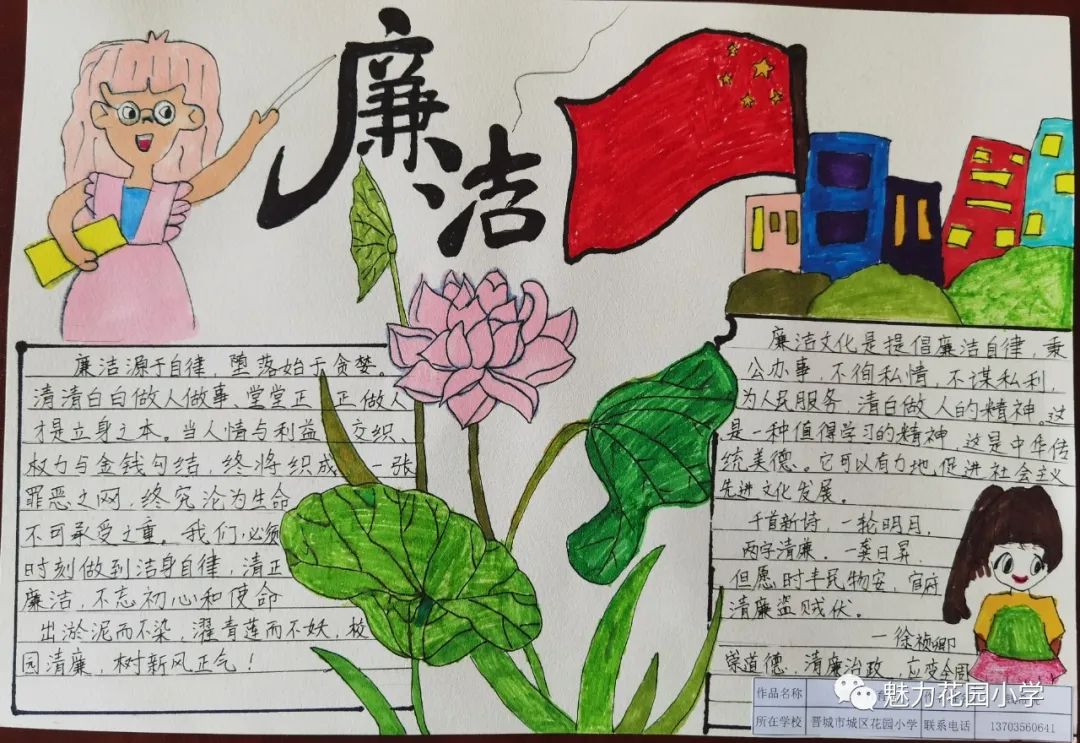 廉洁
廉洁源于自律，堕落始于贪婪。
清清白白做人做事 堂堂正 正做人
才是立身之本。当人情与利益 交织、
权力与金钱勾结，终将织成 一张
罪恶之网，终究沦为生命
不可承受之重。我们必须
时刻做到洁身自律，清正
廉洁，不忘初心和使命
出淤泥而不染，濯青莲而不妖，校
园清廉，树新风正气！
廉洁文化是提倡廉洁自律，秉
公办事，不徇私情，不谋私利，
为人民服务，清白做人的精神。这
是一种值得学习的精神，这是中华传
统美德。它可以有力地促进社会主义
先进文化发展。
千首新诗，一轮明月，
两字清廉，一 日昇
但愿时丰民物安，官府
清廉盗贼伏。
一徐祯卿
崇道德，清廉治政，应变全周
作品名称
所在学校 晋城市城区花园小学 联系电话 13703560641
魅力花园小学